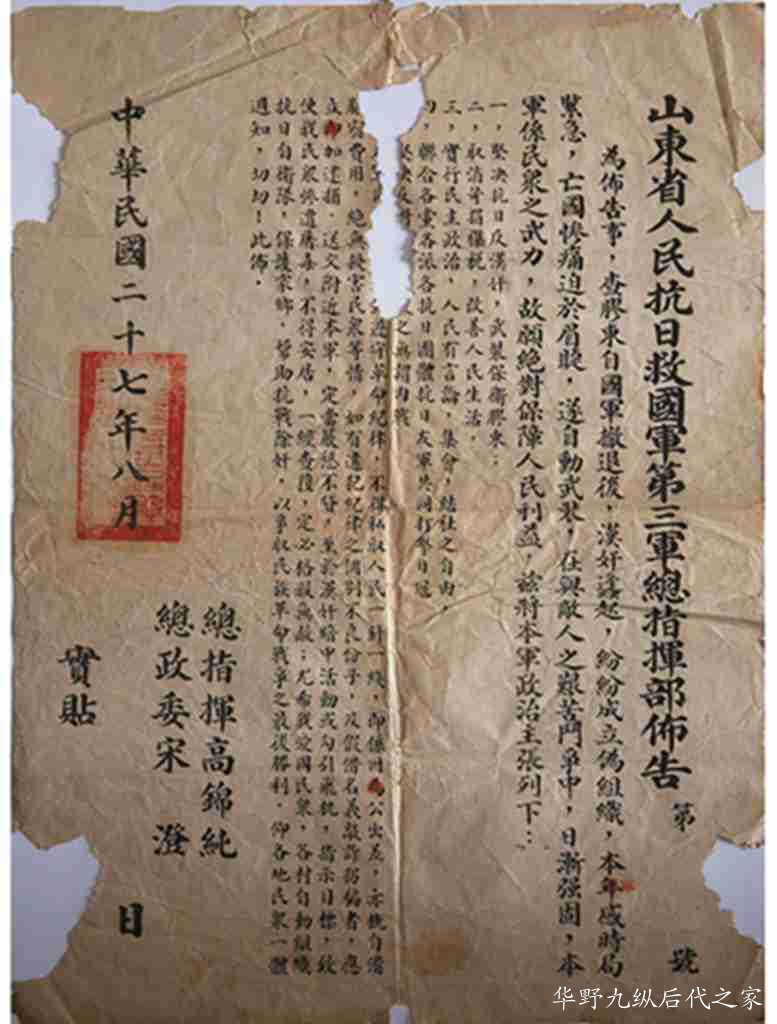 山東省人民抗日救國軍第三軍總指揮部佈告 第 號
為佈告事，查膠東自國軍撤退後，漢奸蠭起，紛紛成立偽組織，本軍感時局
緊急，亡國慘痛迫於眉睫，遂自動武裝，在與敵人之艱苦鬥爭中，日漸强固，本
軍係民衆之武力，故願絕對保障人民利益，茲將本軍政治主張列下：
一，堅决抗日反漢奸，武裝保衛膠東；
二，取消苛捐雜稅，改善人民生活，
三，實行民主政治，人民有言論，集會，結社之自由，
聯合各黨各派各抗日團體抗日友軍共同打擊日寇
堅决反對 之無謂內戰
遵守革命紀律，不得私取人民一針一綫，即係因公出差，亦統自備
宿費用，絕無擾害民衆等情，如有違犯紀律之個別不良份子，及假借名義敲詐拐騙者，應
即加逮捕，送交附近本軍，定當嚴懲不貸，至於漢奸暗中活動或勾引飛機，指示目標，致
使我民衆慘遭屠毒，不得安居，一經查獲，定必格殺無赦；尤希我愛國民衆，各村自動組織
抗日自衛隊，保護家鄉，幫助抗戰除奸，以爭取民族革命戰爭之最後勝利，仰各地民衆一體
週知，切切！此佈。
總指揮高錦純
總政委宋 澄
中華民國二十七年八月 日
實貼
华野九纵后代之家